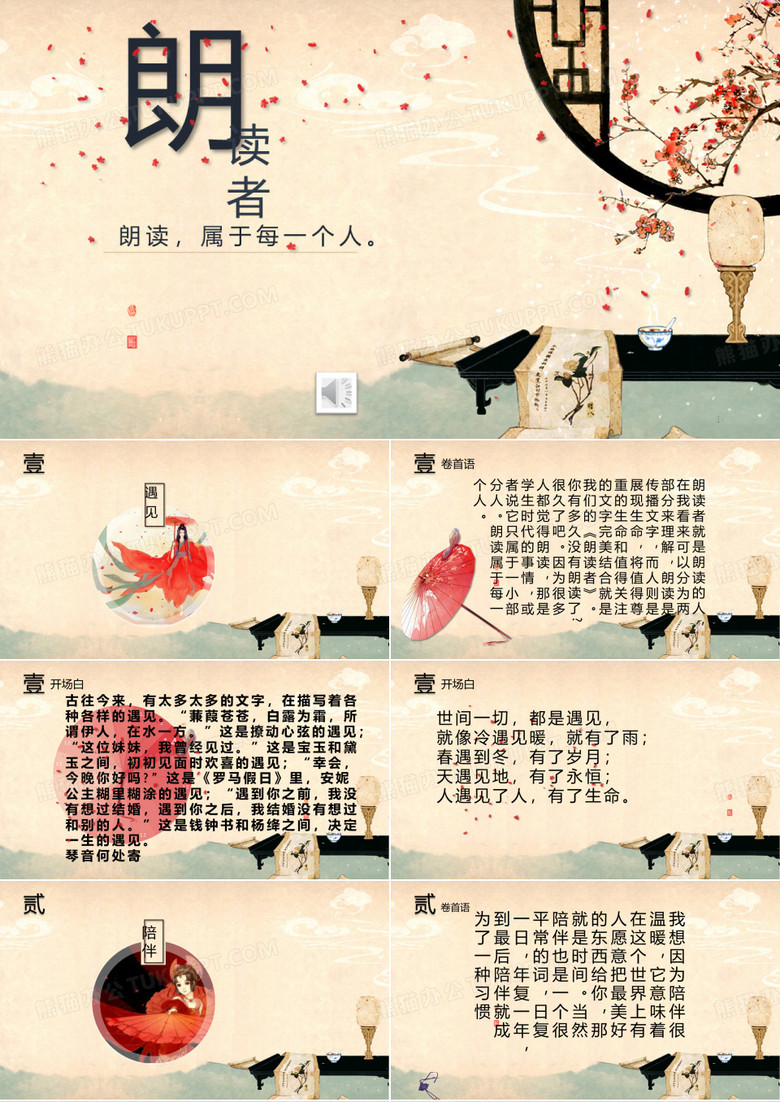 朗
读
者
朗读，属于每一个人。
壹
遇见
壹 卷首语
朗读者就是朗读的人，
在我看来可以分为两
部分来理解，朗读是
传播文字，而人则是
展现生命，将值得尊
重的生命和值得关注
的文字完美结合就是
我们的《朗读者》。
你有多久没有朗读了？
很久了吧。因为很多
人都觉得朗读，那是
学生时代的事情，或
者说它只属于一小部
分人。朗读属于每一
个人。
壹 开场白
古往今来，有太多太多的文字，在描写着各
种各样的遇见。“蒹葭苍苍，白露为霜，所
谓伊人，在水一方。”这是撩动心弦的遇见；
“这位妹妹，我曾经见过。”这是宝玉和黛
玉之间，初初见面时欢喜的遇见；“幸会，
今晚你好吗?”这是《罗马假日》里，安妮
公主糊里糊涂的遇见；“遇到你之前，我没
有想过结婚，遇到你之后，我结婚没有想过
和别的人。”这是钱钟书和杨绛之间，决定
一生的遇见。
琴音何处寄
壹 开场白
世间一切，都是遇见，
就像冷遇见暖，就有了雨；
春遇到冬，有了岁月；
天遇见地，有了永恒；
人遇见了人，有了生命。
贰
陪伴
贰 卷首语
我想，因为陪伴很
温暖，它意味着
在这个世界上有
人愿意把最美好
的东西给你，那
就是时间。当然
陪伴也是一个很
平常的词，日复
一日，年复一年，
到最后陪伴就成
为了一种习惯